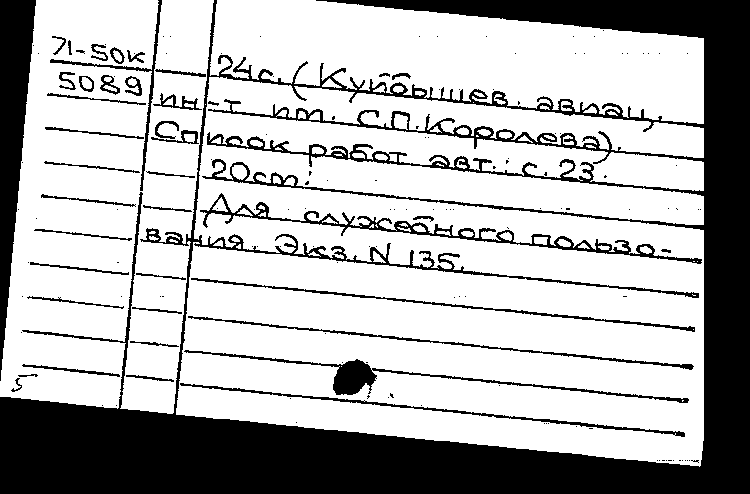 71-50к
5089
24с. (Куйбышев. авиац.
ин-т им. С.П.Королева).
Список работ авт.: с. 23.
20см.
Для служебного пользо-
вания. Экз. N 135.
5